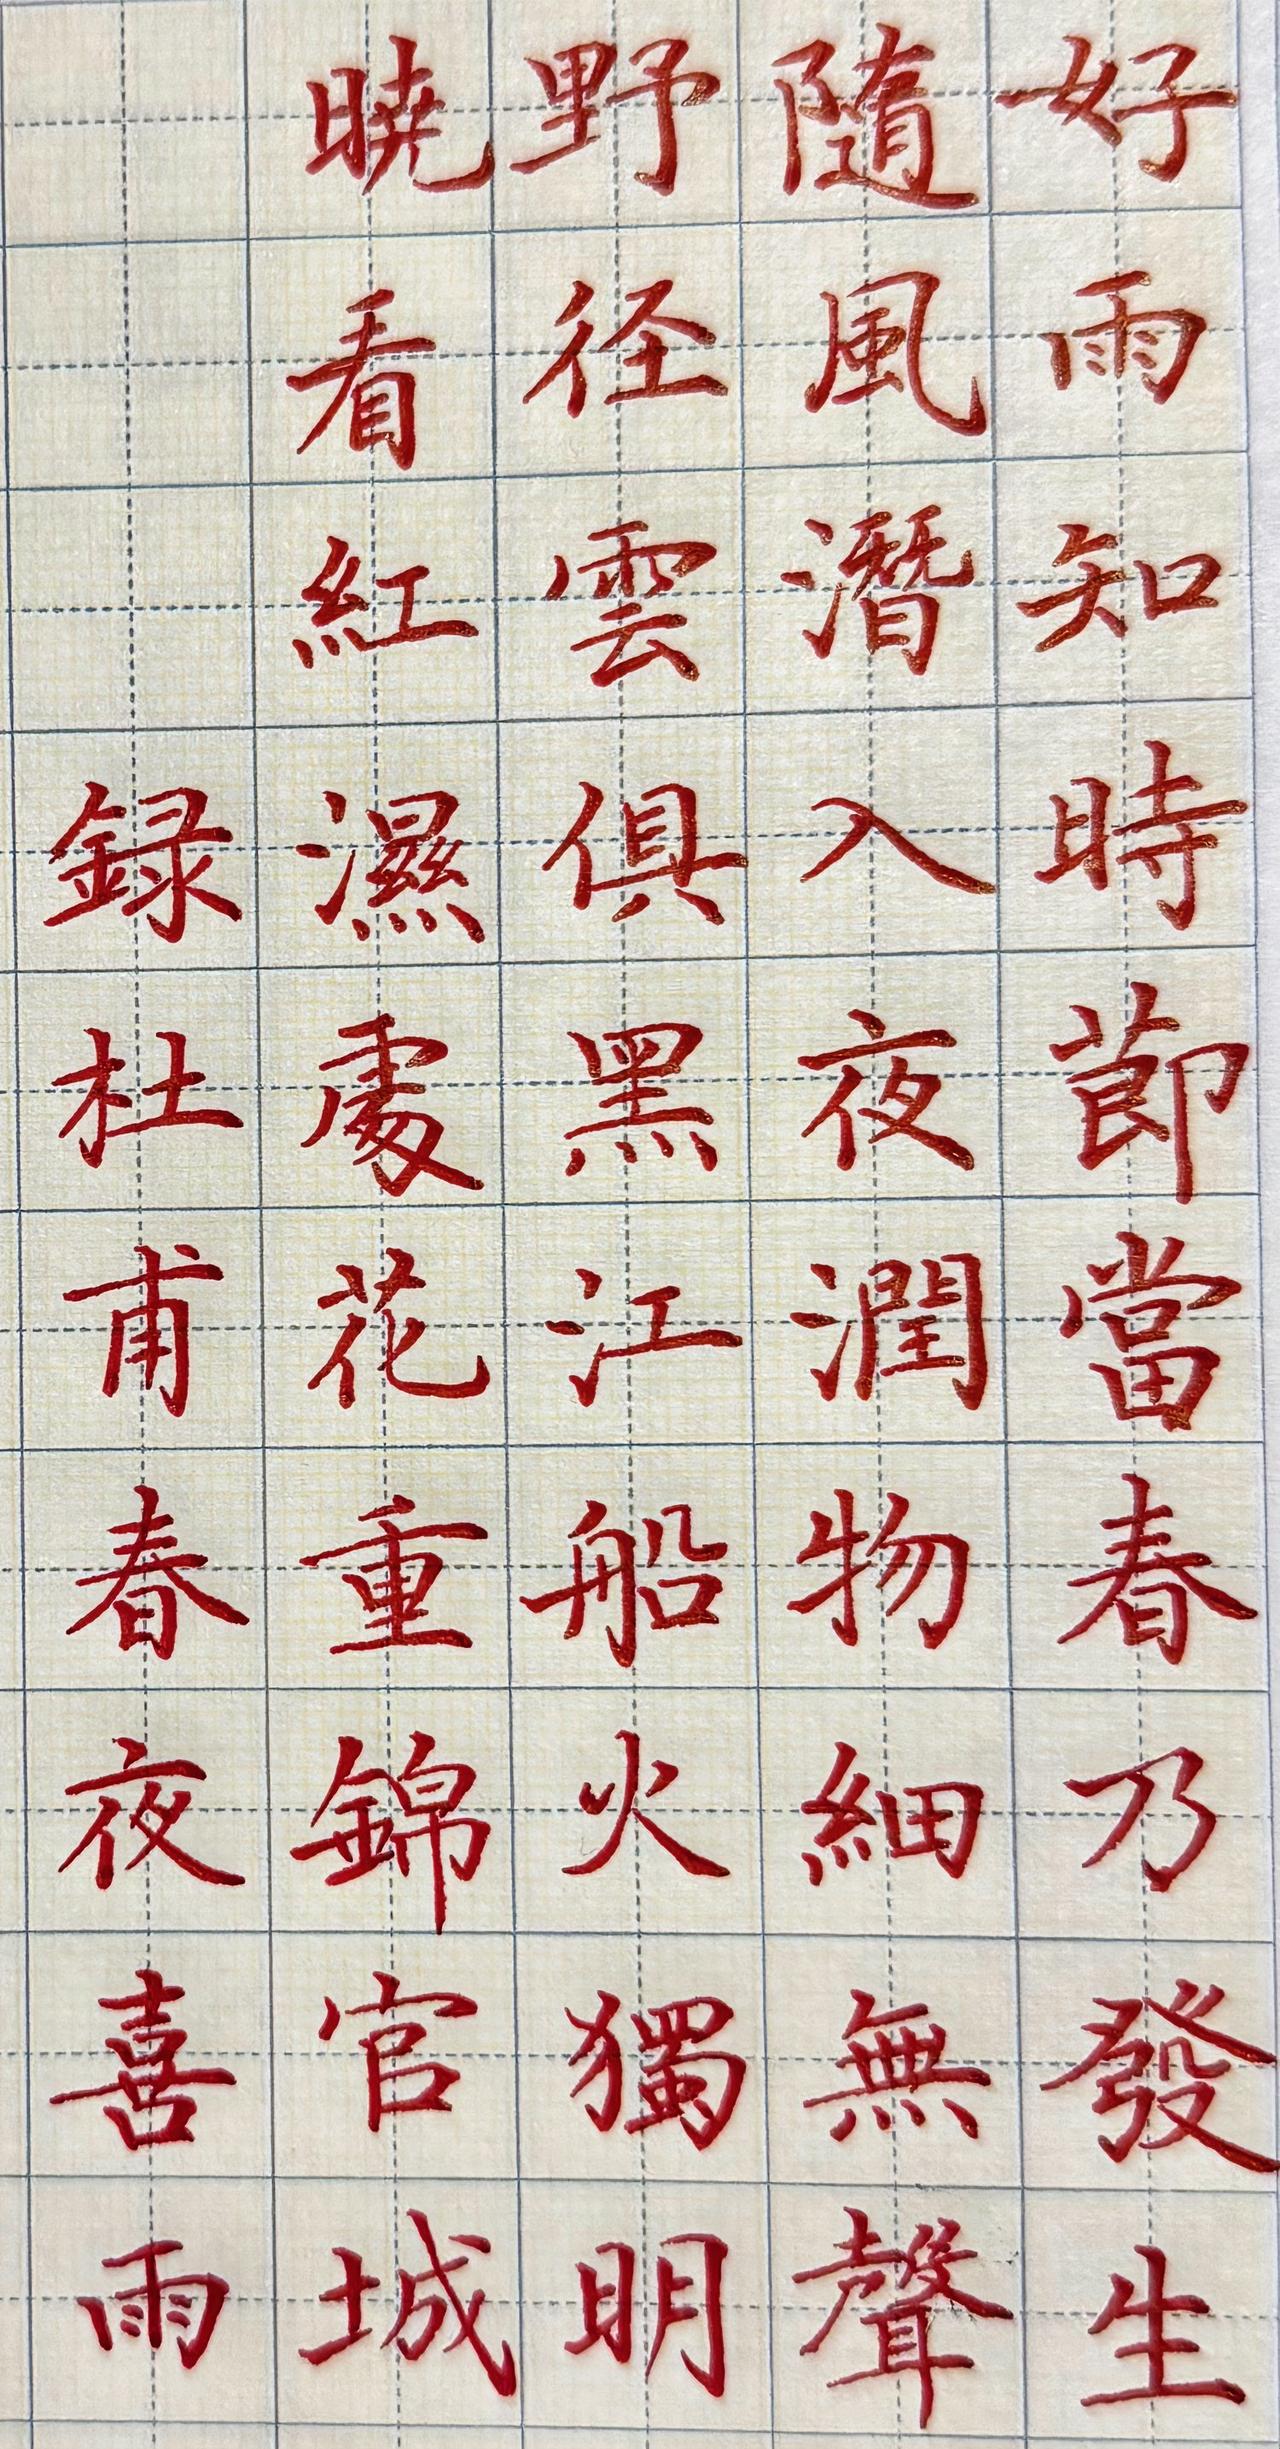 好雨知時節當春乃發生
隨風潛入夜潤物細無聲
野径雲俱黑江船火獨明
暁看紅濕處花重錦官城
録杜甫春夜喜雨